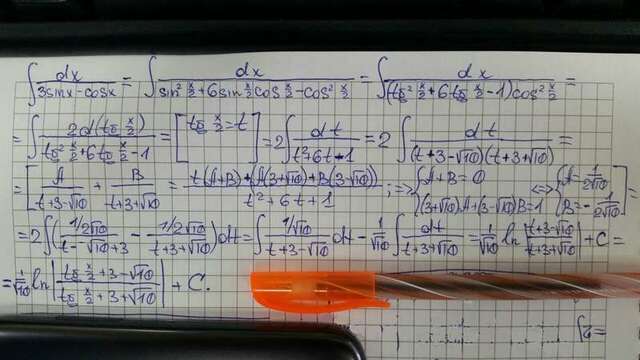 ∫ dx/(3sinx-cosx) = ∫ dx/(sin² x/2 + 6sin x/2 cos x/2 - cos² x/2) = ∫ dx/((tg² x/2 + 6tg x/2 - 1)cos² x/2) =
= ∫ 2d(tg x/2)/(tg² x/2 + 6tg x/2 - 1) = [tg x/2 = t] = 2∫ dt/(t²+6t-1) = 2∫ dt/((t+3-√10)(t+3+√10)) =
= [A/(t+3-√10) + B/(t+3+√10) = (t(A+B)+(A(3+√10)+B(3-√10)))/(t²+6t+1); ⇒ {A+B=0 (3+√10)A+(3-√10)B=1 ⇔ {A=1/2√10 B=-1/2√10] =
= 2∫((1/2√10)/(t-√10+3) - (1/2√10)/(t+3+√10))dt = ∫ (1/√10)/(t+3-√10) dt - 1/√10 ∫ dt/(t+3+√10) = 1/√10 ln|(t+3-√10)/(t+3+√10)| + C =
= 1/√10 ln|(tg x/2 + 3-√10)/(tg x/2 + 3+√10)| + C.